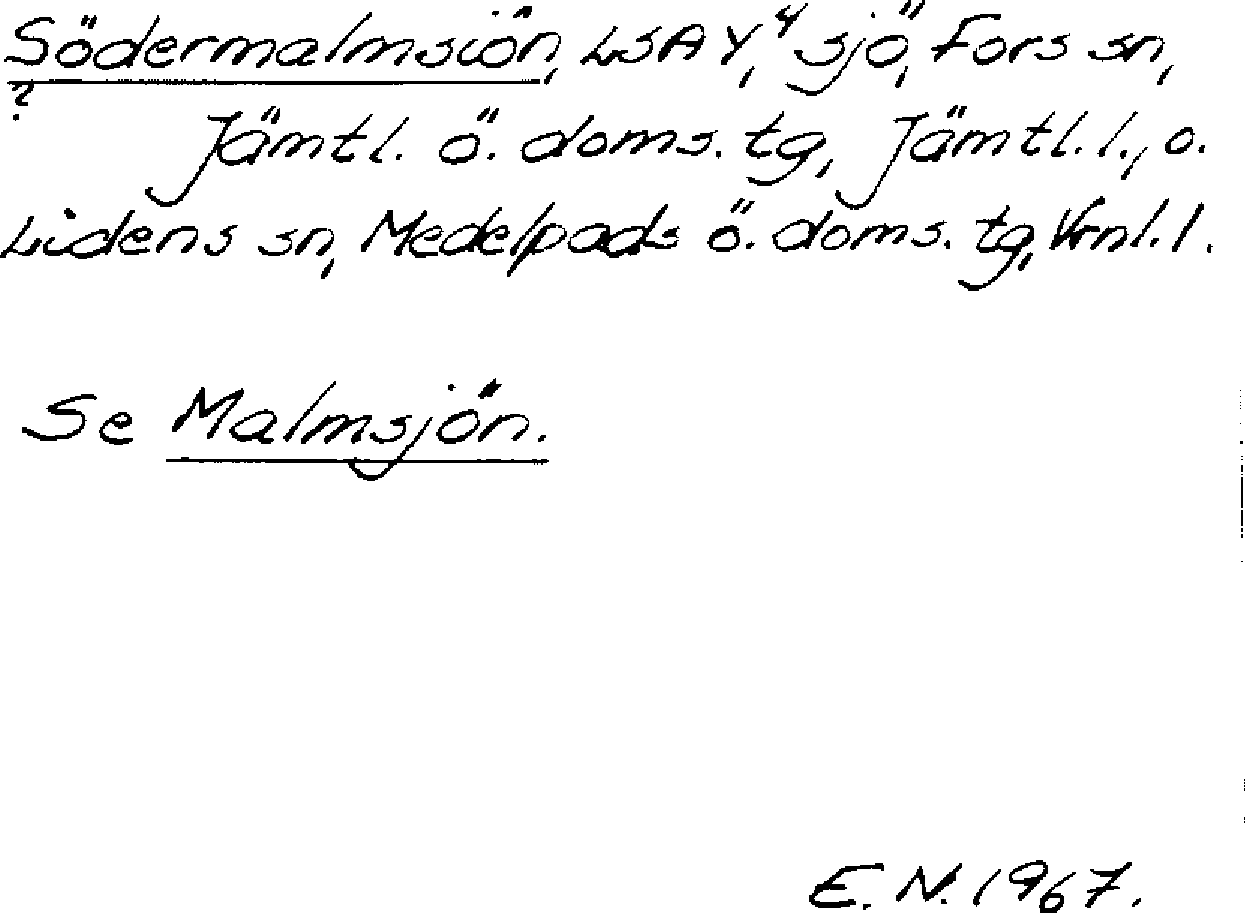 Södermalmsiön, LSA Y,⁴ sjö, Fors sn,
?
Jämtl. ö. doms. tg, Jämtl. l., o.
Lidens sn, Medelpads ö. doms. tg, Vrnl. l.
Se Malmsjön.
E. N. 1967.